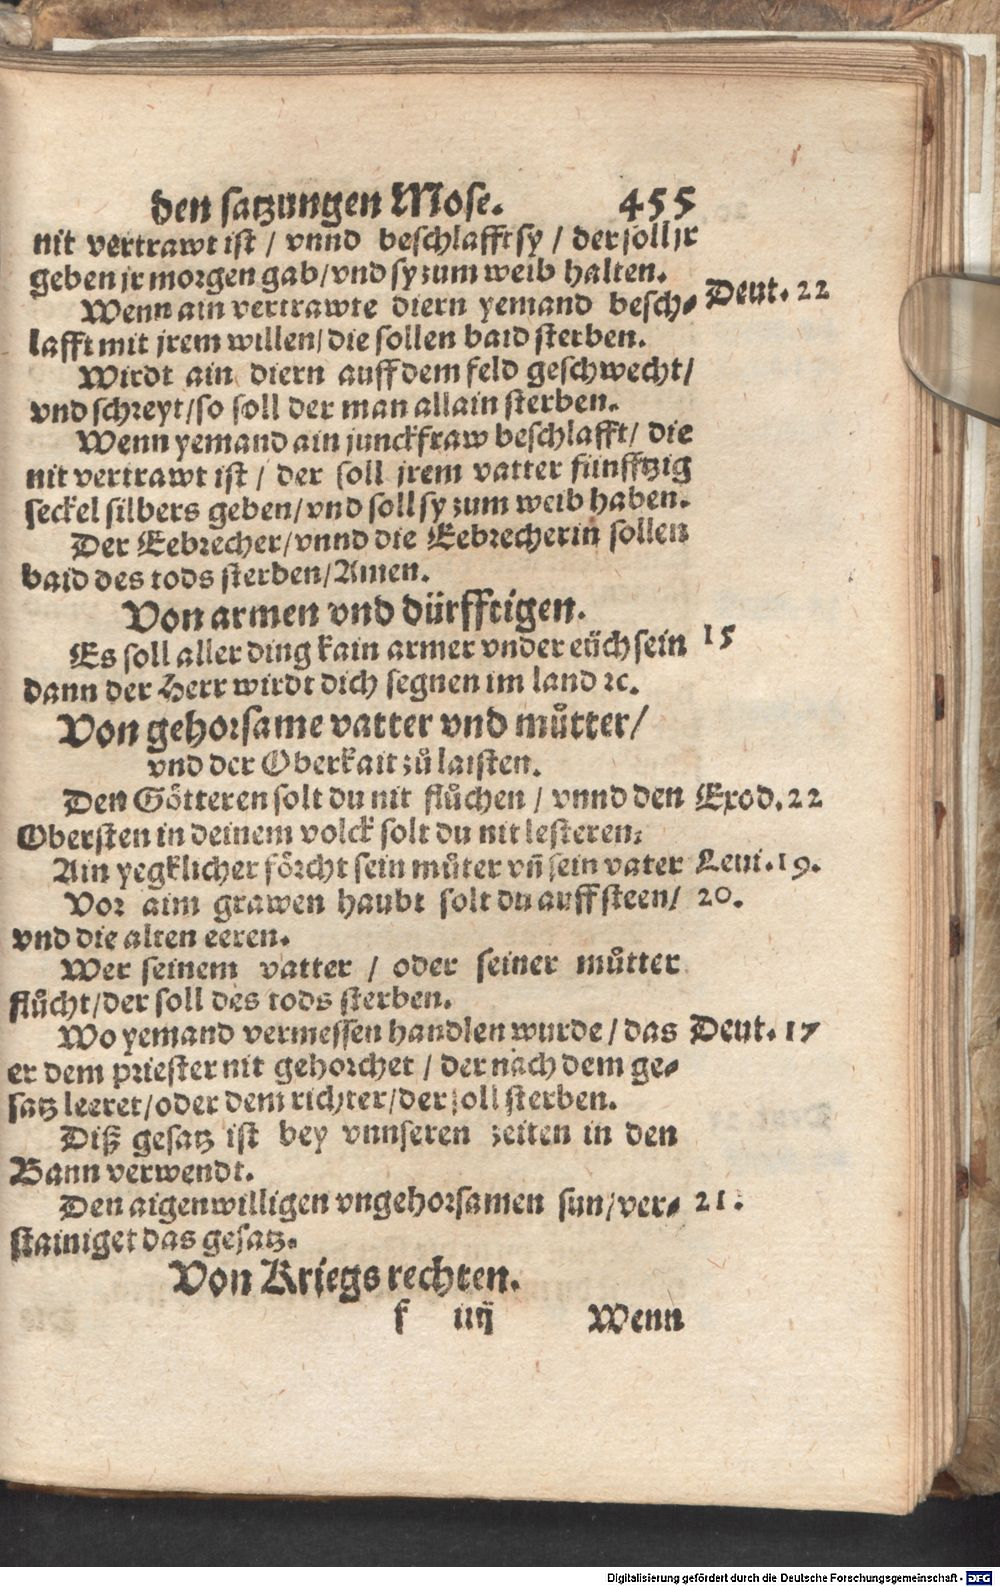 den satzungen Mose. 455
nit vertrawt ist / vnnd beschlafft sy / der soll jr
geben jr morgen gab/vnd sy zum weib halten.
Wenn ain vertrawte diern yemand besch⸗ Deut. 22
lafft mit jrem willen/die sollen baid sterben.
Wirdt ain diern auff dem feld geschwecht/
vnd schreyt/so soll der man allain sterben.
Wenn yemand ain junckfraw beschlafft/ die
nit vertrawt ist / der soll jrem vatter fünfftzig
seckel silbers geben/vnd soll sy zum weib haben.
Der Eebrecher/vnnd die Eebrecherin sollen
baid des tods sterben/Amen.
Von armen vnd dürfftigen.
Es soll aller ding kain armer vnder eüch sein 15
dann der Herr wirdt dich segnen im land ꝛc.
Von gehorsame vatter vnd muͤtter/
vnd der Oberkait zuͤ laisten.
Den Götteren solt du nit fluͤchen / vnnd den Exod. 22
Obersten in deinem volck solt du nit lesteren.
Ain yegklicher förcht sein muͤter vn̄ sein vater Leui. 19.
Vor aim grawen haubt solt du auff steen/ 20.
vnd die alten eeren.
Wer seinem vatter / oder seiner muͤtter
fluͤcht/der soll des tods sterben.
Wo yemand vermessen handlen wurde/das Deut. 17
er dem priester nit gehorchet / der nach dem ge⸗
satz leeret/oder dem richter/der soll sterben.
Diß gesatz ist bey vnnseren zeiten in den
Bann verwendt.
Den aigenwilligen vngehorsamen sun/ver⸗ 21.
stainiget das gesatz.
Von Kriegs rechten.
k iiij Wenn
Digitalisierung gefördert durch die Deutsche Forschungsgemeinschaft - DFG